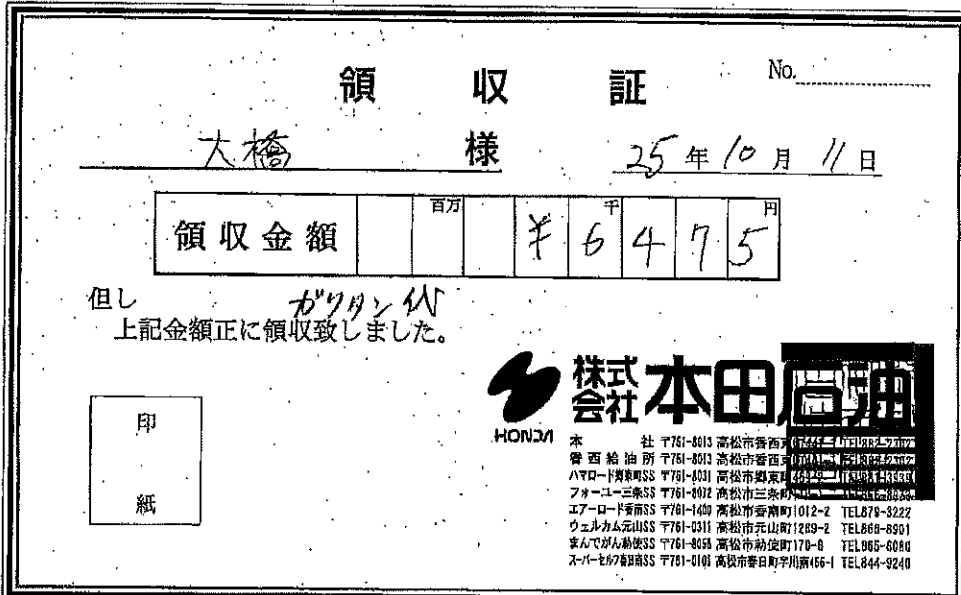 領収証
No.
大橋 様
25年10月11日
領収金額 百万 千 円 ¥6475
但し ガソリン代
上記金額正に領収致しました。
印紙
HONDA
株式会社 本田石油
本社 〒761-8013 高松市香西東
香西給油所 〒761-8013 高松市香西東
ハマロード郷東町SS 〒761-8031 高松市郷東町
フォーユー三条SS 〒761-8072 高松市三条町
エアーロード香南SS 〒761-1400 高松市香南町1012-2 TEL879-3222
ウェルカム元山SS 〒761-0311 高松市元山町1269-2 TEL866-8901
まんでがん勅使SS 〒761-8056 高松市勅使町170-6 TEL865-6080
スーパーセルフ春日南SS 〒761-0101 高松市春日町字川南456-1 TEL844-9240